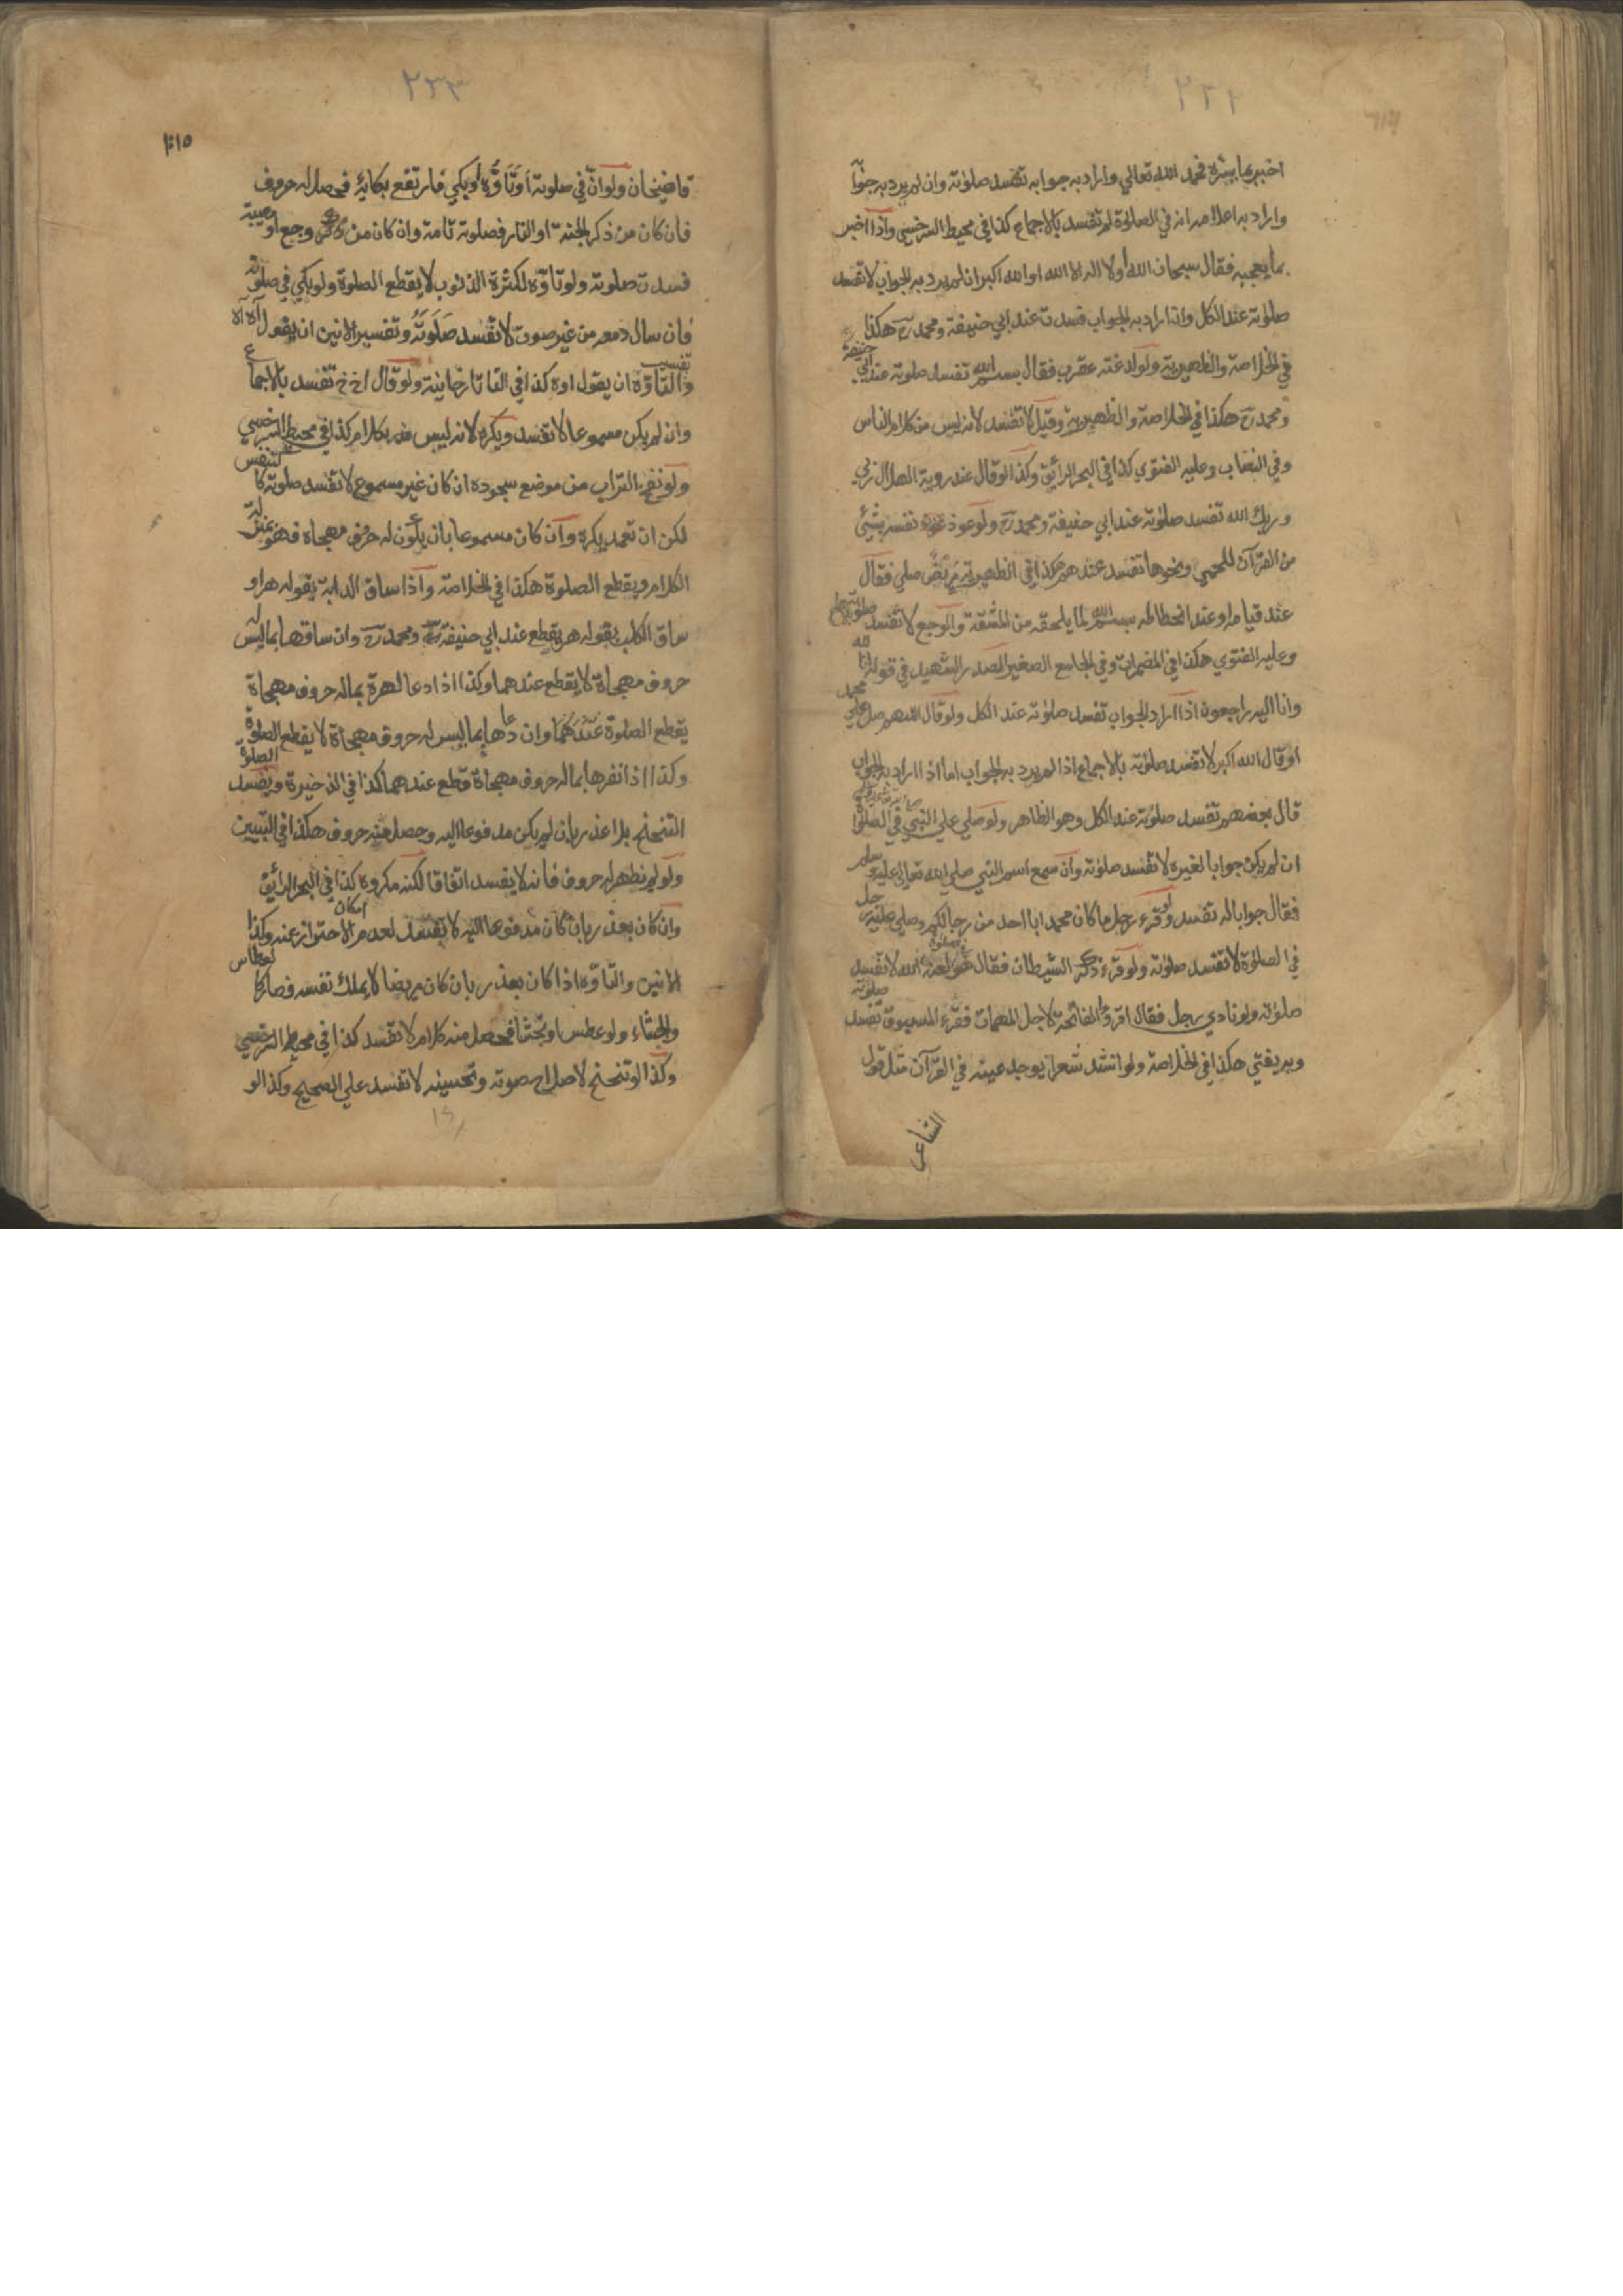 ٢٣٢
اخبر بما يسره فحمد الله تعالي واراد به جوابه تفسد صلوته وان لم يرد به جوابا
واراد به اعلامه انه في الصلوة لم تفسد بالاجماع كذا في محيط السرخسي واذا اخبر
بما يعجبه فقال سبحان الله او لا اله الا الله او الله اكبر ان لم يرد به الجواب لا تفسد
صلوته عند الكل وان اراد به الجواب فسدت عند ابي حنيفة ومحمد رح هكذا
في الخلاصة والظهيرية ولو لدغته عقرب فقال بسم الله تفسد صلوته عند ابي حنيفة
ومحمد رح هكذا في الخلاصة والظهيرية وقيل لا تفسد لانه ليس من كلام الناس
وفي النصاب وعليه الفتوي كذا في البحر الرائق وكذا لو قال عند روية الهلال ربي
وربك الله تفسد صلوته عند ابي حنيفة ومحمد رح ولو عوذ نفسه بشئ
من القرآن للحمي ونحوها تفسد عندهم هكذا في الظهيرية مريض صلي فقال
عند قيامه او عند انحطاطه بسم الله لما يلحقه من المشقة والوجع لا تفسد صلوته
وعليه الفتوي هكذا في المضمرات وفي الجامع الصغير للصدر الشهيد في قوله انا لله
وانا اليه راجعون اذا اراد الجواب تفسد صلوته عند الكل ولو قال اللهم صل علي محمد
او قال الله اكبر لا تفسد صلوته بالاجماع اذا لم يرد به الجواب اما اذا اراد به الجواب
قال بعضهم تفسد صلوته عند الكل وهو الظاهر ولو صلي علي النبي في الصلوة
ان لم يكن جوابا لغيره لا تفسد صلوته وان سمع اسم النبي صلي الله تعالي عليه وسلم
فقال جوابا له تفسد ولو قرء رجل ما كان محمد ابا احد من رجالكم وصلي عليه رجل
في الصلوة لا تفسد صلوته ولو قرء ذكر الشيطان فقال لعنه الله لا تفسد
صلوته ولو نادي رجل فقال اقرؤا الفاتحة لاجل المهمات فقرء المسبوق تفسد صلوته
وبه يفتي هكذا في الخلاصة ولو انشد شعرا يوجد عينه في القرآن مثل قول
الشاعر
٢٣٣
قاضيخان ولو ان في صلوته او تاوه او بكي فارتفع بكائه فحصل له حروف
فان كان من ذكر الجنة او النار فصلوته تامة وان كان من وجع او مصيبة
فسدت صلوته ولو تاوه لكثرة الذنوب لا يقطع الصلوة ولو بكي في صلوته
فان سال دمعه من غير صوت لا تفسد صلوته وتفسير الانين ان يقول آه آه
وتفسير التاوه ان يقول اوه كذا في التاتارخانية ولو قال اخ خ تفسد بالاجماع
وان لم يكن مسموعا لا تفسد ويكره لانه ليس بكلام كذا في محيط السرخسي
ولو نفخ التراب من موضع سجوده ان كان غير مسموع لا تفسد صلوته كالتنفس
لكن ان تعمد يكره وان كان مسموعا بان يكون له حروف مهجاة فهو بمنزلة
الكلام ويقطع الصلوة هكذا في الخلاصة واذا ساق الدابة بقوله هر او
ساق الكلب بقوله هر يقطع عند ابي حنيفة رح ومحمد رح وان ساقها بما ليس له
حروف مهجاة لا يقطع عندهما وكذا اذا دعا الهرة بما له حروف مهجاة
يقطع الصلوة عندهما وان دعاها بما ليس له حروف مهجاة لا يقطع الصلوة
وكذا اذا نفرها بما له حروف مهجاة قطع عندهما كذا في الذخيرة ويفسد الصلوة
التنحنح بلا عذر بان لم يكن مدفوعا اليه وحصل منه حروف هكذا في التبيين
ولو لم يظهر له حروف فانه لا يفسد اتفاقا لكنه مكروه كذا في البحر الرائق
وان كان بعذر بان كان مدفوعا اليه لا يفسد لعدم امكان الاحتراز عنه وكذا
الانين والتاوه اذا كان بعذر بان كان مريضا لا يملك نفسه فصار كالعطاس
والجشاء ولو عطس او تجشا فحصل منه كلام لا تفسد كذا في محيط السرخسي
وكذا لو تنحنح لاصلاح صوته وتحسينه لا تفسد علي الصحيح وكذا لو